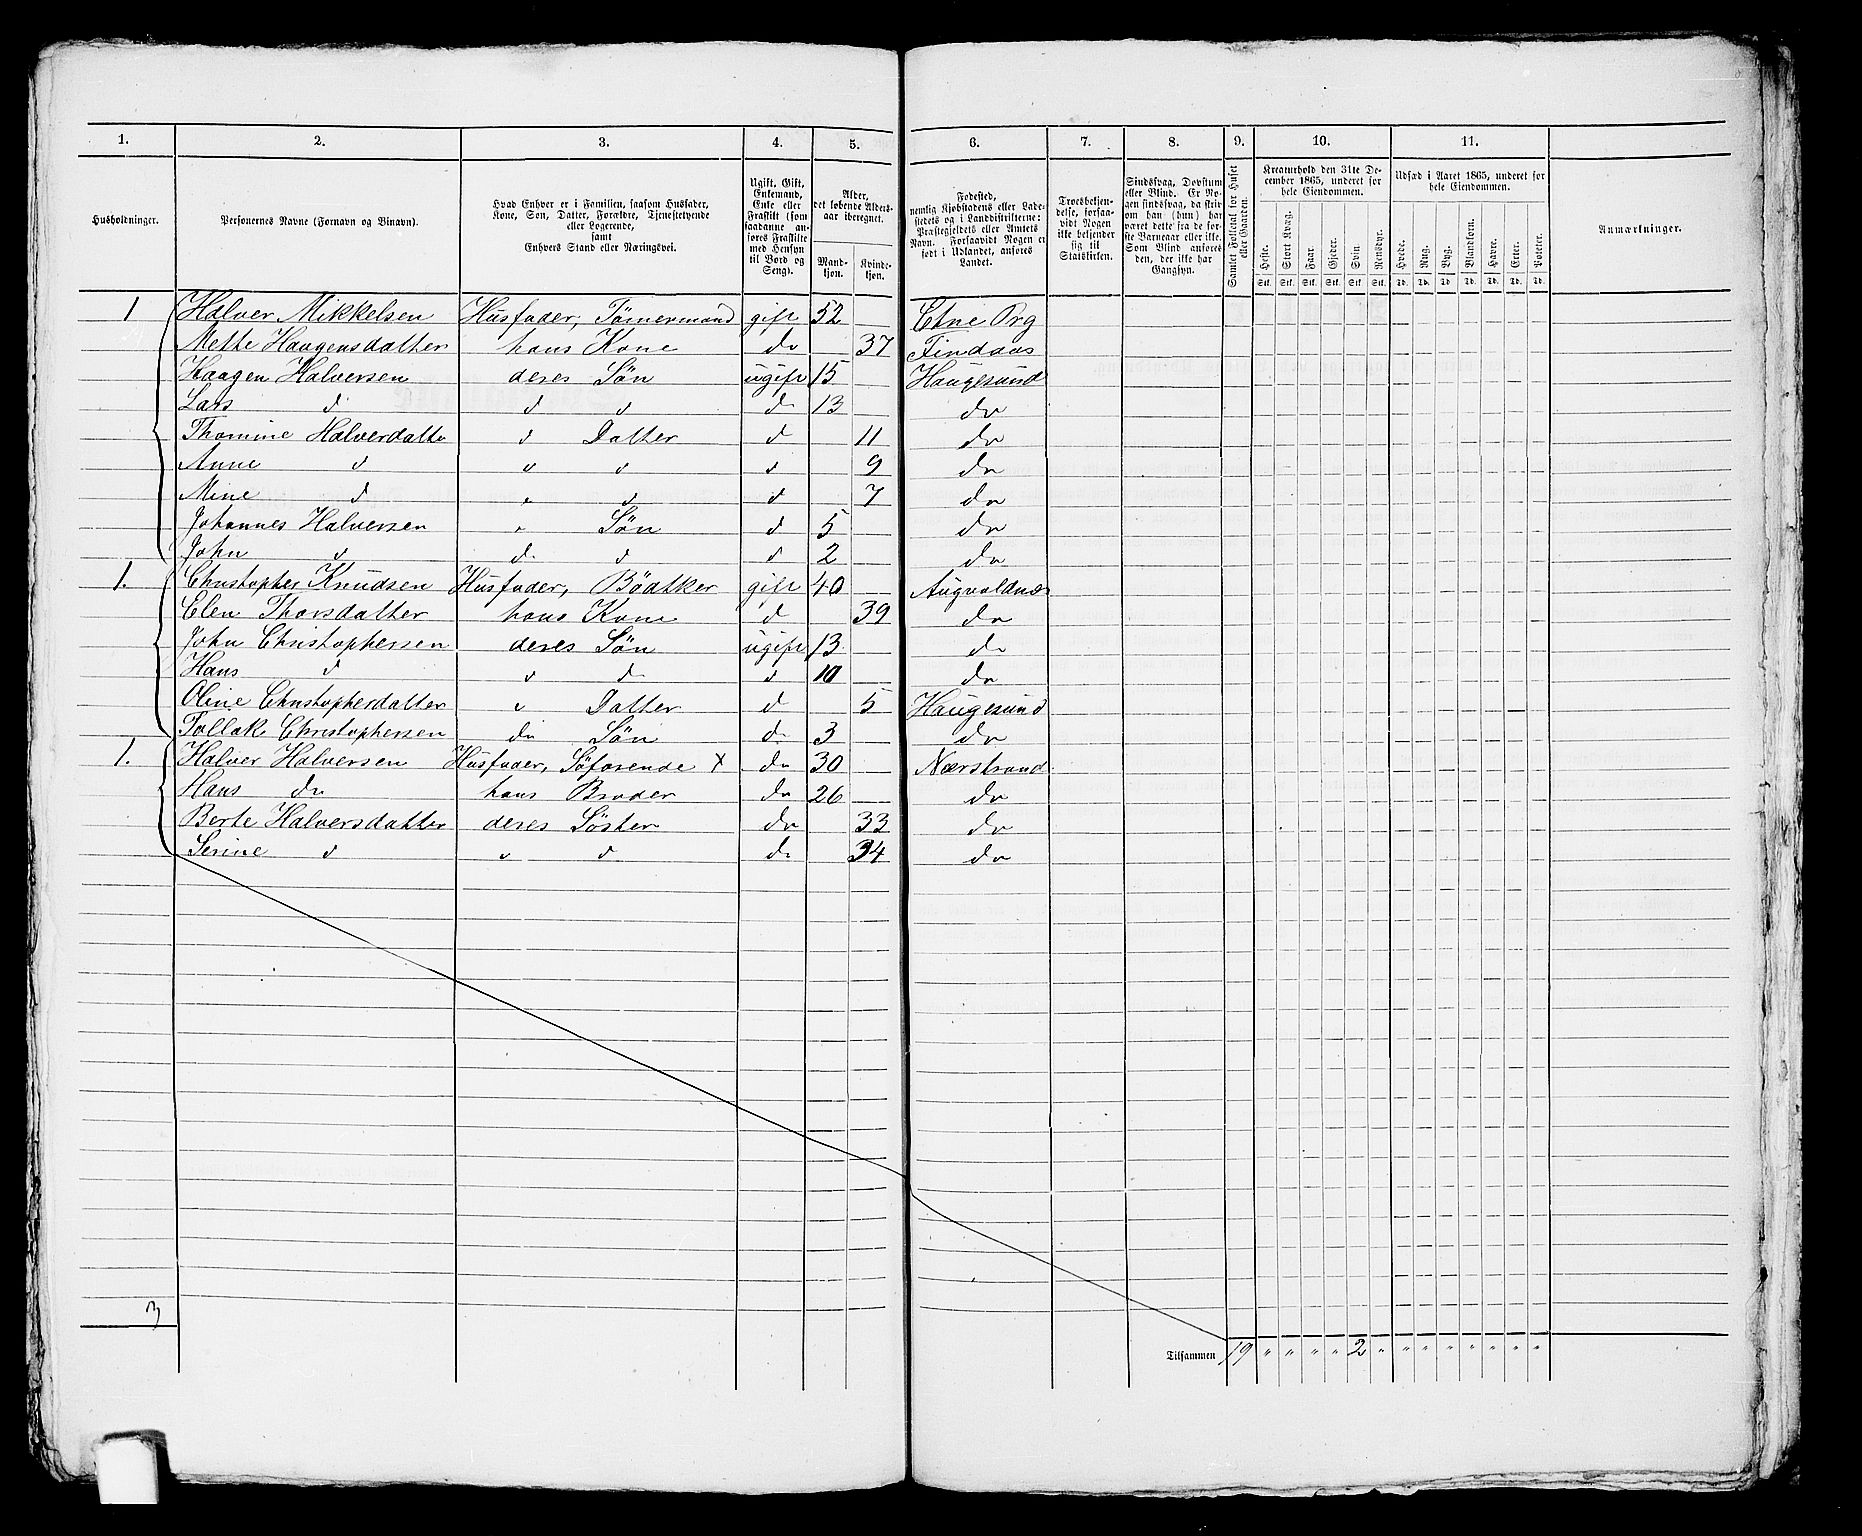 1. 2. 3. 4. 5. 6. 7. 8. 9. 10. 11.
Husholdninger.
Personernes Navne (Fornavn og Binavn).
Hvad Enhver er i Familien, saasom Husfader,
Kone, Søn, Datter, Forældre, Tjenestetyende
eller Logerende,
samt
Enhvers Stand eller Næringsvei.
Ugift, Gift,
Enkemand,
Enke eller
Fraskilt (som
saadanne an-
føres Fraskilte
med Hensyn
til Bord og
Seng).
Alder,
det løbende Alders-
aar iberegnet.
Mand-
kjøn.
Kvinde-
kjøn.
Fødested,
nemlig Kjøbstadens eller Lade-
stedets og i Landdistrikterne:
Præstegjeldets eller Amtets
Navn. Forsaavidt Nogen er
født i Udlandet, anføres
Landet.
Troesbekjen-
delse, forsaa-
vidt Nogen
ikke bekjender
sig til
Statskirken.
Sindssvag, Døvstum
eller Blind. Er No-
gen sindssvag, da skriv
om han (hun) har
været dette fra de før-
ste Barneaar eller ikke.
Som Blind anføres
den, der ikke har
Gangsyn.
Samlet Folketal for Huset
eller Gaarden.
Kreaturhold den 31te De-
cember 1865, underet for
hele Eiendommen.
Heste. Stort Kvæg. Faar. Gjeder. Svin Rensdyr.
Stk. Stk. Stk. Stk. Stk. Stk.
Udsæd i Aaret 1865, underet for
hele Eiendommen.
Hvede. Rug. Byg. Blandkorn. Havre. Erter. Poteter.
Td. Td. Td. Td. Td. Td. Td.
Anmærkninger.
1 Halver Mikkelsen Husfader, Tømermand gift 52 Etne Prg
Mette Haagensdatter hans Kone do 37 Findaas
Haagen Halversen deres Søn ugift 15 Haugesund
Lars d d d d 13 do
Thomine Halverdatte d Datter d 11 do
Anne d d d d 9 do
Mine d " d d 7 do
Johannes Halversen " Søn d 5 do
John d d d d 2 do
1. Christopher Knudsen Husfader, Bödtker gift 40 Augvaldnæs
Elen Thorsdatter hans Kone d 39 do
John Christophersen deres Søn ugift 13 do
Hans d d d d 10 do
Oline Christopherdatter d Datter d 5 Haugesund
Tollak Christophersen do Søn d 3 do
1. Halver Halversen Husfader, Söfarende x do 30 Nærstrand
Hans do hans Broder do 26 do
Berte Halversdatter deres Søster do 33 do
Serine d d d do 34 do
3
Tilsammen 19 " " " " 2 " " " " " " " "